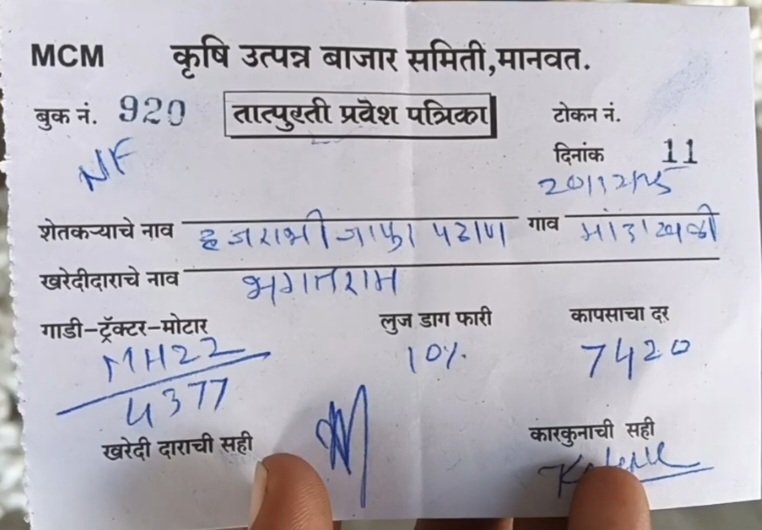 MCM कृषि उत्पन्न बाजार समिती,मानवत.
बुक नं. 920 तात्पुरती प्रवेश पत्रिका टोकन नं. 11
NF
दिनांक
20/12/25
शेतकऱ्याचे नाव पठाण गाव
खरेदीदाराचे नाव भगतराम
गाडी-ट्रॅक्टर-मोटार लुज डाग फारी कापसाचा दर
MH22 10% 7420
4377
खरेदी दाराची सही कारकुनाची सही